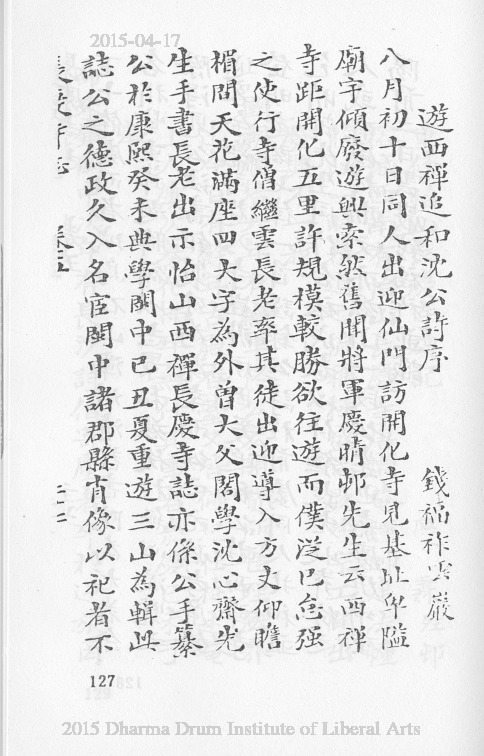 2015-04-17
遊西禪追和沈公詩序　錢福祚雲巖
八月初十日同人出迎仙門訪開化寺見基址卑隘
廟宇傾廢遊興索然舊聞將軍慶晴邨先生云西禪
寺距開化五里許規模較勝欲往遊而僕從已怠强
之使行寺僧繼雲長老率其徒出迎導入方丈仰瞻
楣間天花滿座四大字為外曾大父閣學沈心齋先
生手書長老出示怡山西禪長慶寺誌亦係公手纂
公於康熙癸未典學閩中己丑夏重遊三山為輯此
誌公之德政久入名宦閩中諸郡縣肖像以祀者不
長慶寺志　卷五
127
2015 Dharma Drum Institute of Liberal Arts